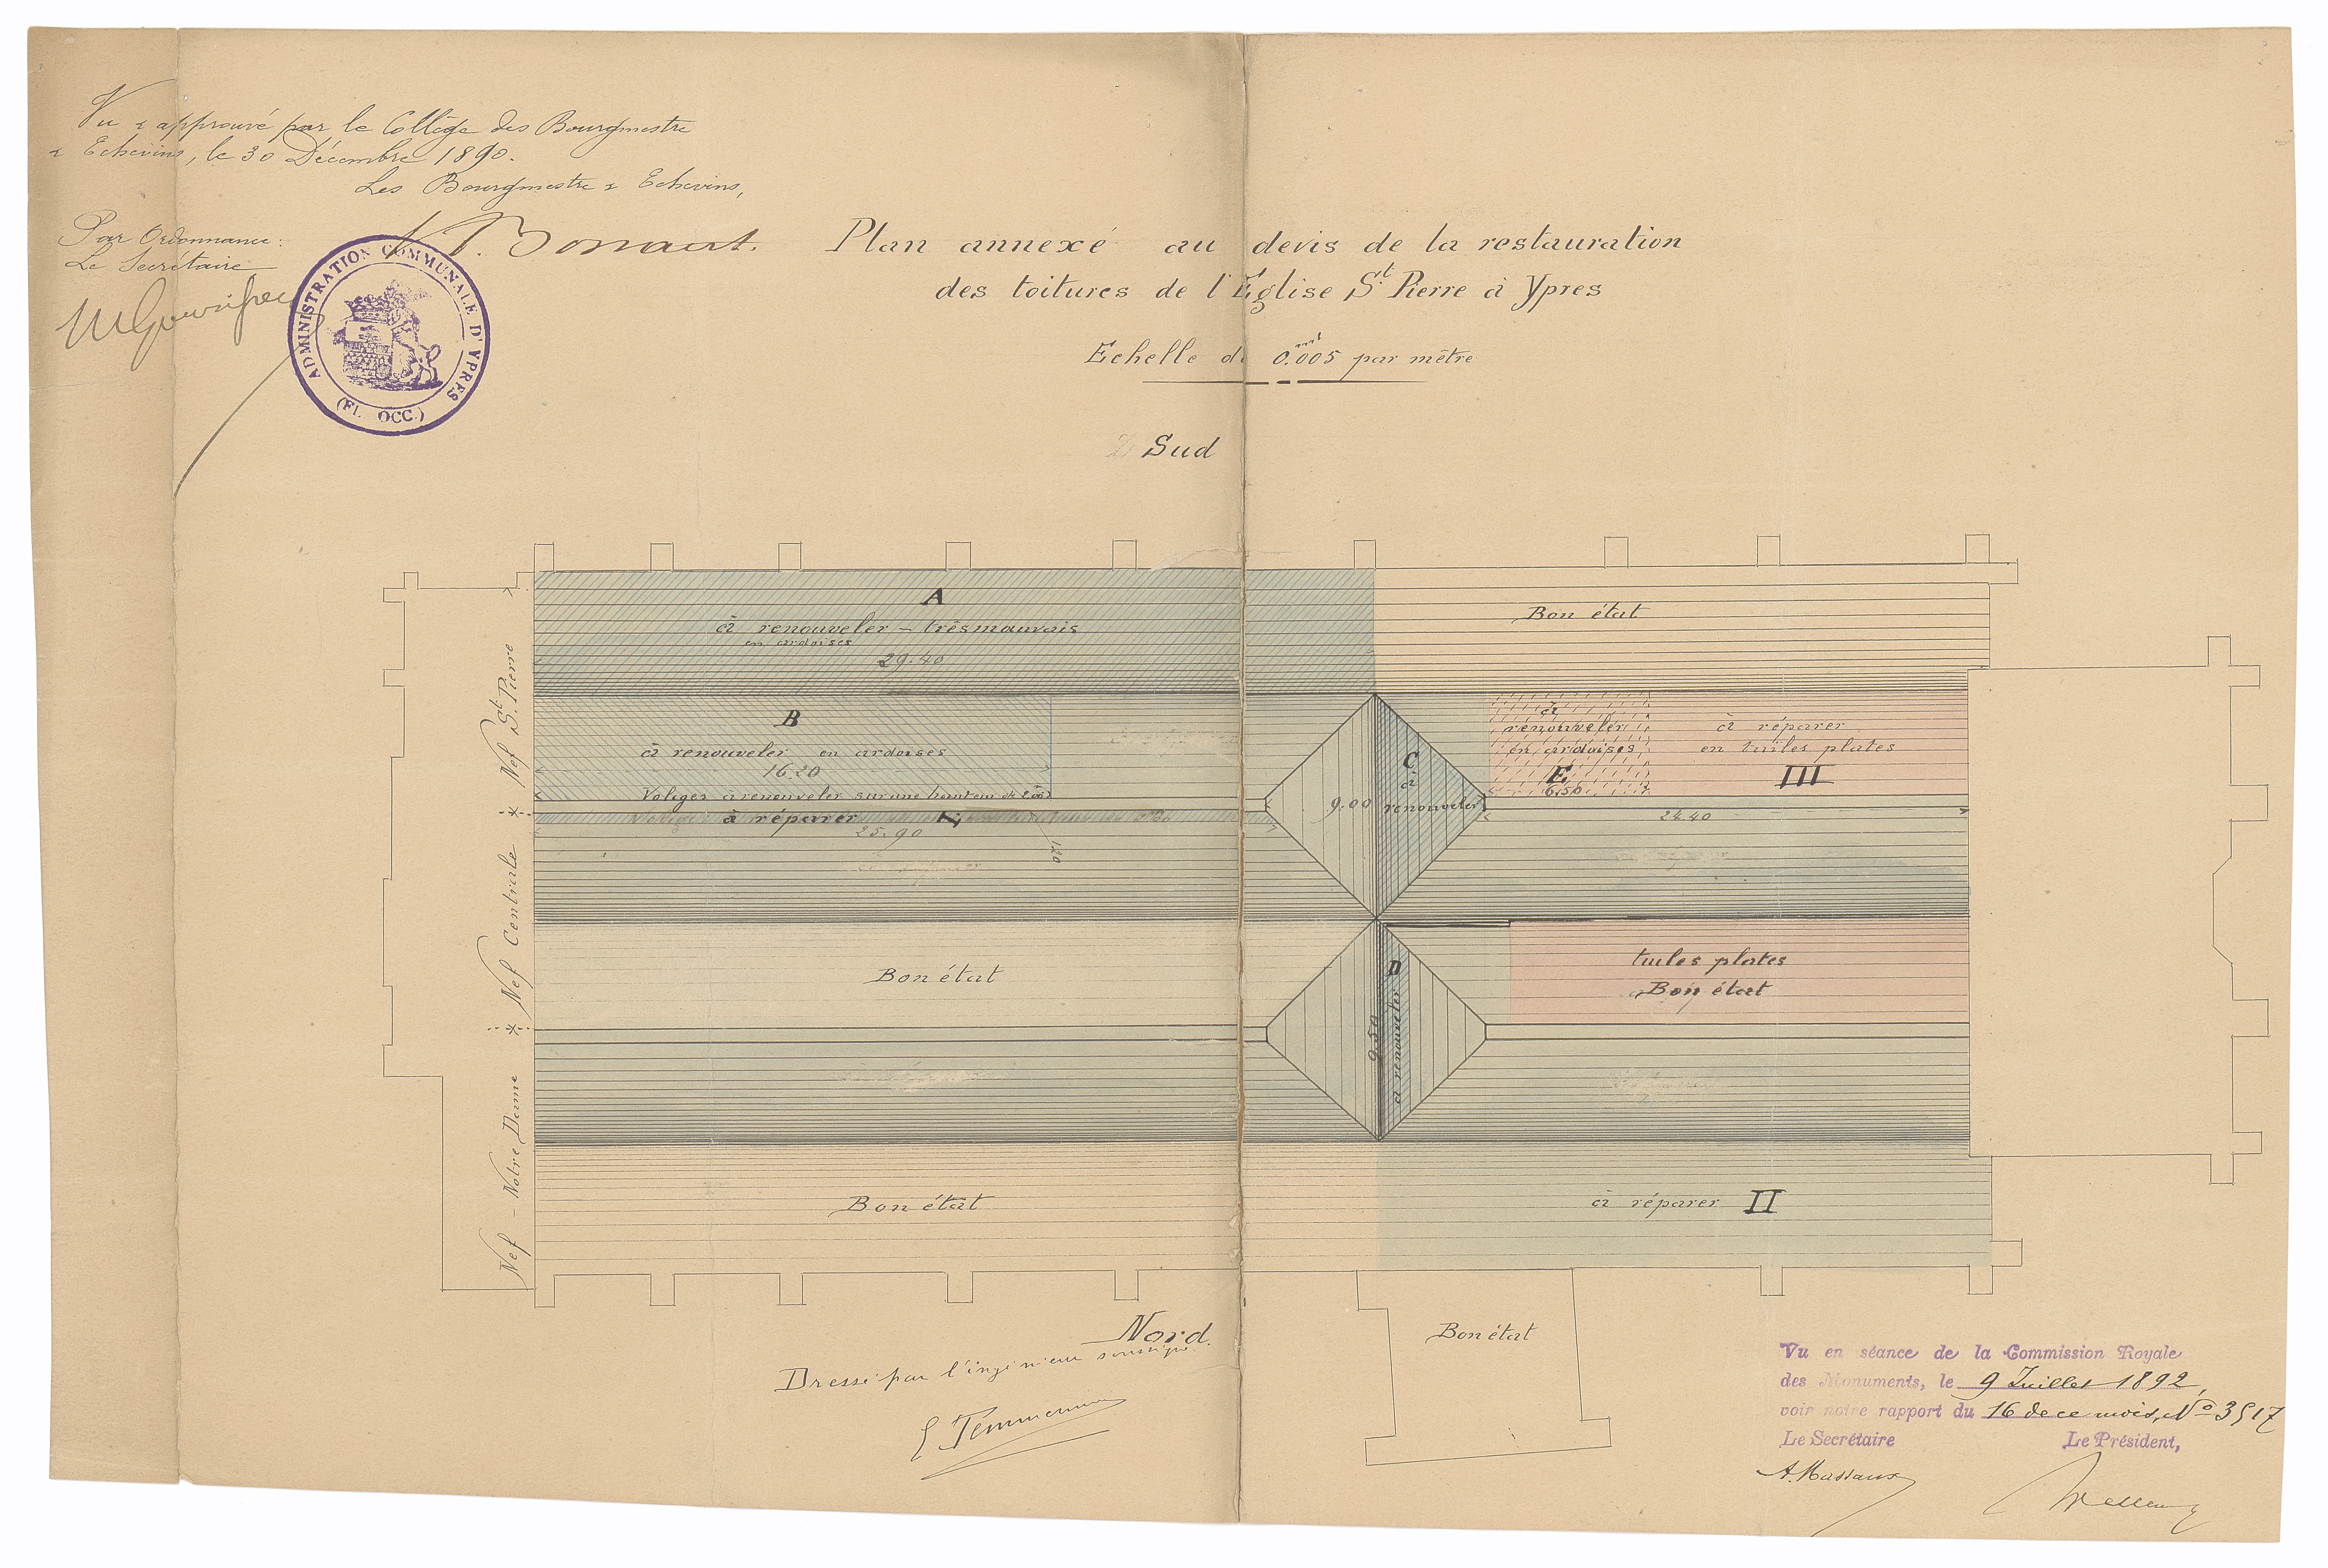 Vu & approuvé par le Collège des Bourgmestre
& Echevins, le 30 Décembre 1890.
Les Bourgmestre & Echevins,
Par Ordonnance:
Le Secrétaire
ADMINISTRATION COMMUNALE D'YPRES
(FL. OCC.)
Plan annexé au devis de la restauration
des toitures de l'Eglise St. Pierre à Ypres
Echelle de 0.005 par mètre
Sud
A
à renouveler – très mauvais
en ardoises
29.40
Bon état
B
à renouveler en ardoises
16.20
Voliges à renouveler sur une hauteur de
à réparer
25.90
1.20
9.00
C
à
renouveler
à
renouveler
en ardoises
E
6.50
à réparer
en tuiles plates
III
24.40
Bon état
D
à renouveler
9.50
tuiles plates
Bon état
Bon état
à réparer II
Nef St. Pierre
Nef Centrale
Nef - Notre Dame
Nord.
Dressé par l'ingénieur soussigné
Bon état
Vu en séance de la Commission Royale
des Monuments, le 9 Juillet 1892,
voir notre rapport du 16 de ce mois, No 3517
Le Secrétaire
Le Président,
A. Massaux